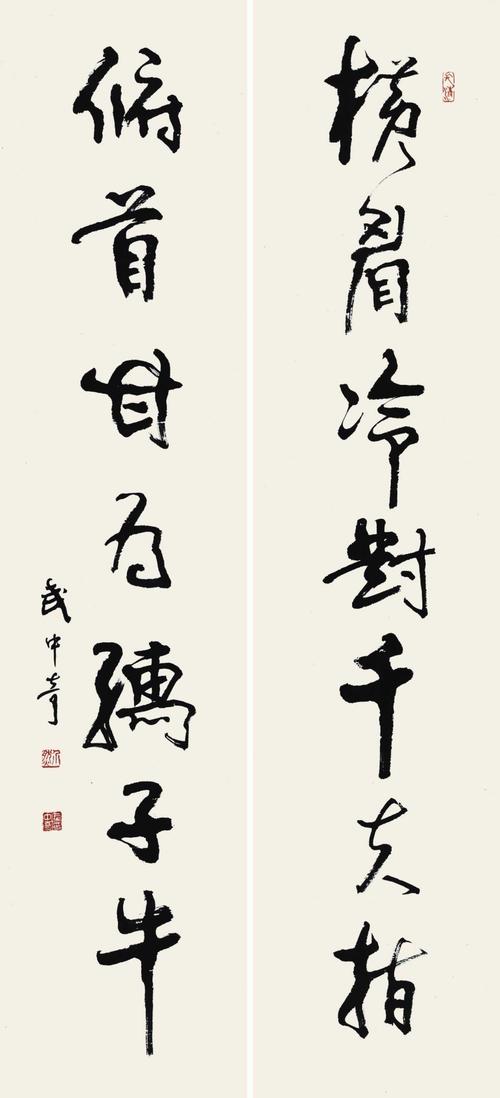 橫眉冷對千夫指
俯首甘为孺子牛
武中奇